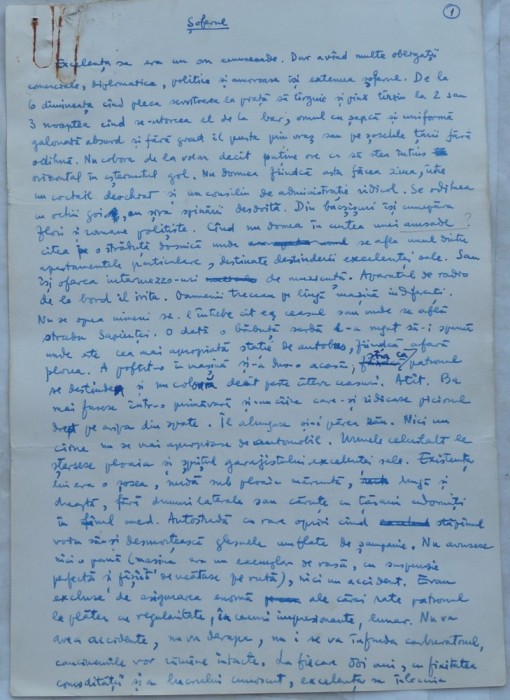 1
Șoferul
Excelența sa era un om cumsecade. Dar având multe obligații
comerciale, diplomatice, politice și amoroase își extenua șoferul. De la
6 dimineața când pleca servitoarea la piață să târguie și până târziu la 2 sau
3 noaptea când se-ntorcea el de la bar, omul cu șapcă și uniformă
galonată absurd și fără grad îl purta prin oraș sau pe șoselele țării fără
odihnă. Nu cobora de la volan decât puține ore ca să stea întins
orizontal în așternutul gol. Nu dormea fiindcă asta făcea ziua, între
un cocktail deochiat și un consiliu de administrație ridicol. Se odihnea
cu ochii goi, cu șira spinării desdoită. Din bacșișuri își cumpăra
flori și romane polițiste. Când nu dormea în curtea unei ambasade ?
citea pe o străduță dosnică unde se afla unul dintre
apartamentele particulare, destinate destinderii excelenței sale. Sau
își oferea intermezzo-uri de muzicuță. Aparatul de radio
de la bord îl irita. Oamenii treceau pe lângă mașină indiferenți.
Nu se oprea nimeni să-l întrebe cât e ceasul sau unde se află
strada Sapienței. O dată o bătrână surdă l-a rugat să-i spună
unde este cea mai apropiată stație de autobus, fiindcă afară
ploua. A poftit-o în mașină și-a dus-o acasă, știa că patronul
se destinde și nu coboară decât peste câteva ceasuri. Atât. Ba
mai fusese într-o primăvară și un câine care-și ridicase piciorul
drept pe aripa din spate. Îl alungase și-i părea rău. Nici un
câine nu se mai apropiase de automobil. Urmele celuilalt le
ștersese ploaia și șpițul garajistului excelenței sale. Existența
lui era o șosea, udă sub ploaia măruntă, lungă și
dreaptă, fără drumuri laterale sau căruțe cu țărani adormiți
în fânul ud. Autostradă cu rare opriri când stăpânul
voia să-și desmorțească gleznele umflate de șampanie. Nu avusese
nici o pană (mașina era un exemplar de rasă, cu suspensie
perfectă și de neatuse pe rută), nici un accident. Erau
excluse de asigurarea enormă ale cărei rate patronul
le plătea cu regularitate, în cecuri impresionante, lunar. Nu va
avea accidente, nu va derapa, nu i se va înfunda carburatorul,
cauciucurile vor rămâne intacte. La fiecare doi ani, cu finețea
comodității și a lucrului cunoscut, excelența sa înlocuia